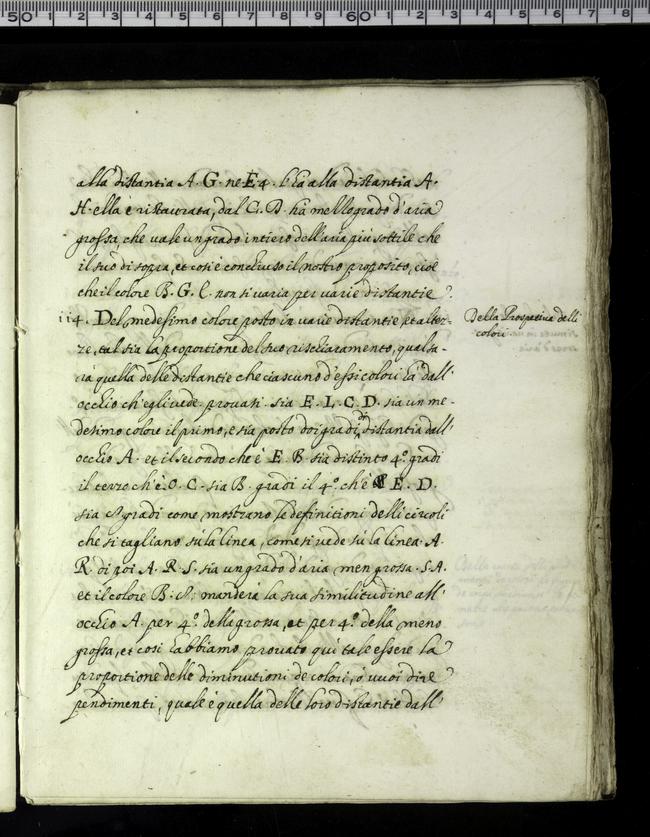 alla distantia A. G. ne E 4. ha alla distantia A.
H. ella è ristaurata, dal C. D. hà mello grado d'aria
grossa, che uale un grado intiero dell'aria più sottile che
il suo di sopra, et così è concluso il nostro proposito, cioè
che il colore B. G. C. non si uaria per uarie distantie.
114. Del medesimo colore posto in uarie distantie, et altez-
ze, tal sia la proportione del suo rischiaramento, qual sa-
rà quella delle distantie che ciascuno d'essi colori hà dall'
occhio ch'egli uede. prouasi. sia E. L. C. D. sia un me-
desimo colore il primo, e sia posto doi gradi di distantia dall'
occhio A. et il secondo che è E B. sia distinto 4º. gradi
il terzo ch'è. O. C. sia B. gradi il 4º. ch'è E. D.
sia 8 gradi come, mostrano le definitioni delli circoli
che si tagliano sù la linea, come si uede sù la linea. A.
R. oi poi A. R. S. sia un grado d'aria men grossa. S. A.
et il colore B. 8: manderà la sua similitudine all'
occhio A. per 4º. della grossa, et per 4º. della meno
grossa, et così habbiamo prouato qui tale essere la
proportione delle diminutioni de colori, ò uuoi dire
perdimenti, quale è quella delle loro distantie dall'
Della Prospetiua delli
colori